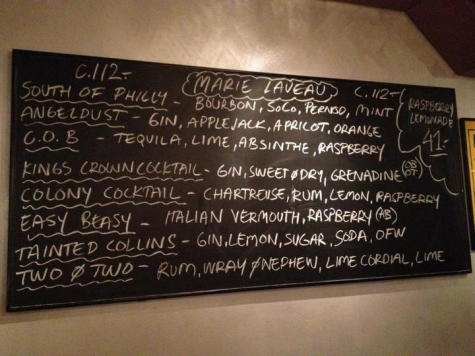 C. 112-
MARIE LAVEAU
C. 112-
SOUTH OF PHILLY - BOURBON, SOCO, PERNOD, MINT
ANGELDUST - GIN, APPLEJACK, APRICOT, ORANGE
C.O.B - TEQUILA, LIME, ABSINTHE, RASPBERRY
KINGS CROWN COCKTAIL - GIN, SWEET Ø DRY, GRENADINE
COLONY COCKTAIL - CHARTREUSE, RUM, LEMON, RASPBERRY
EASY BEASY - ITALIAN VERMOUTH, RASPBERRY (AB)
TAINTED COLLINS - GIN, LEMON, SUGAR, SODA, OFW
TWO Ø TWO - RUM, WRAY Ø NEPHEW, LIME CORDIAL, LIME
RASPBERRY
LEMONADE
41-